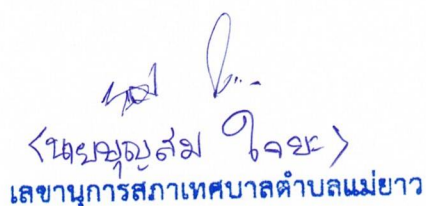 (นายบุญสม ใจยะ)
เลขานุการสภาเทศบาลตำบลแม่ยาว